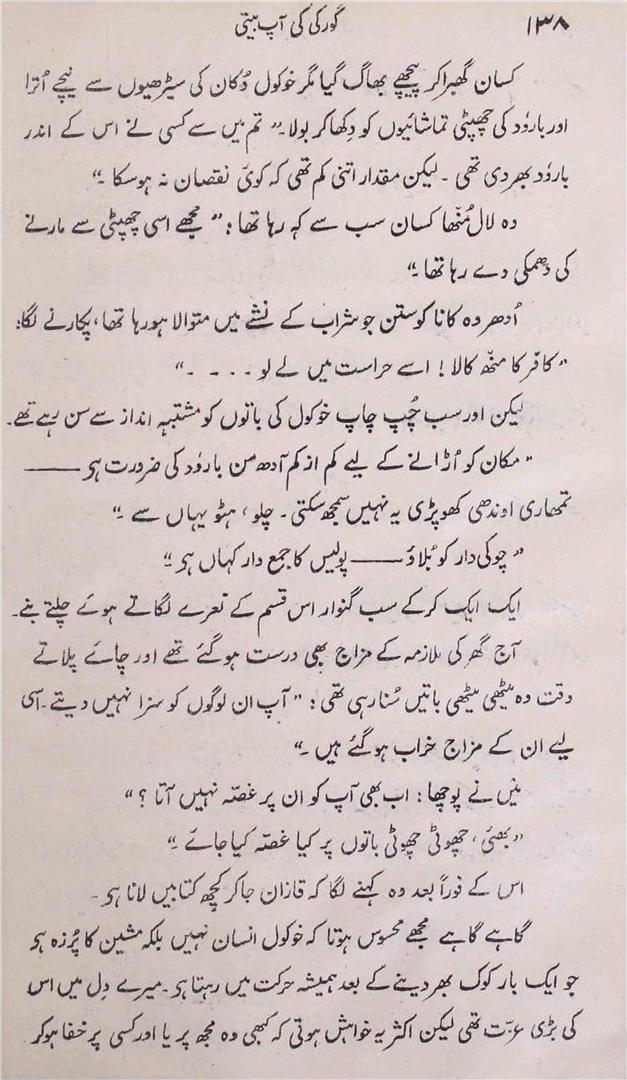 ۱۳۸
گورکی کی آپ بیتی
کسان گھبرا کر پیچھے بھاگ گیا مگر خوکول دُکان کی سیڑھیوں سے نیچے اُترا
اور بارُود کی چھپٹی تماشائیوں کو دِکھا کر بولا۔ ”تم میں سے کسی نے اس کے اندر
بارُود بھر دی تھی ۔ لیکن مقدار اتنی کم تھی کہ کوئ نقصان نہ ہو سکا ۔“
وہ لال مُنّھا کسان سب سے کہ رہا تھا : ”مجھے اسی چھپٹی سے مارنے
کی دھمکی دے رہا تھا ۔“
اُدھر وہ کانا کوستن جو شراب کے نشے میں متوالا ہو رہا تھا، پکارنے لگا:
”کافر کا منھ کالا ! اسے حراست میں لے لو ۔ ۔ ۔ ۔“
لیکن اور سب چُپ چاپ خوکول کی باتوں کو مشتبہ انداز سے سن رہے تھے۔
”مکان کو اُڑانے کے لیے کم از کم آدھ من بارُود کی ضرورت ہی ——
تمھاری اوندھی کھوپڑی یہ نہیں سمجھ سکتی ۔ چلو ، ہٹو یہاں سے ۔“
”چوکی دار کو بُلاؤ —— پولیس کا جمع دار کہاں ہی ؟“
ایک ایک کر کے سب گنوار اس قسم کے نعرے لگاتے ہوئے چلتے بنے۔
آج گھر کی ملازمہ کے مزاج بھی درست ہو گئے تھے اور چائے پلاتے
وقت وہ میٹھی میٹھی باتیں سُنا رہی تھی : ”آپ ان لوگوں کو سزا نہیں دیتے۔ اسی
لیے ان کے مزاج خراب ہو گئے ہیں ۔“
مَیں نے پوچھا : اب بھی آپ کو ان پر غصّہ نہیں آتا ؟“
”بھئ ، چھوٹی چھوٹی باتوں پر کیا غصّہ کیا جائے ۔“
اس کے فوراً بعد وہ کہنے لگا کہ قازان جا کر کچھ کتابیں لانا ہی ۔
گاہے گاہے مجھے محسوس ہوتا کہ خوکول انسان نہیں بلکہ مشین کا پُرزہ ہی
جو ایک بار کوک بھر دینے کے بعد ہمیشہ حرکت میں رہتا ہی ۔ میرے دِل میں اس
کی بڑی عزّت تھی لیکن اکثر یہ خواہش ہوتی کہ کبھی وہ مجھ پر یا اور کسی پر خفا ہو کر